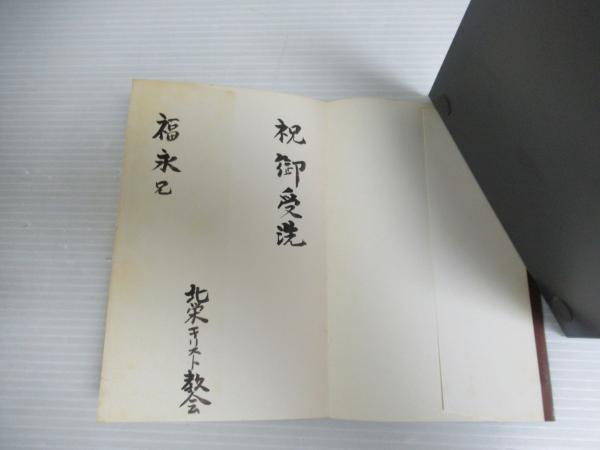 祝御受洗
北栄キリスト教会
福永兄